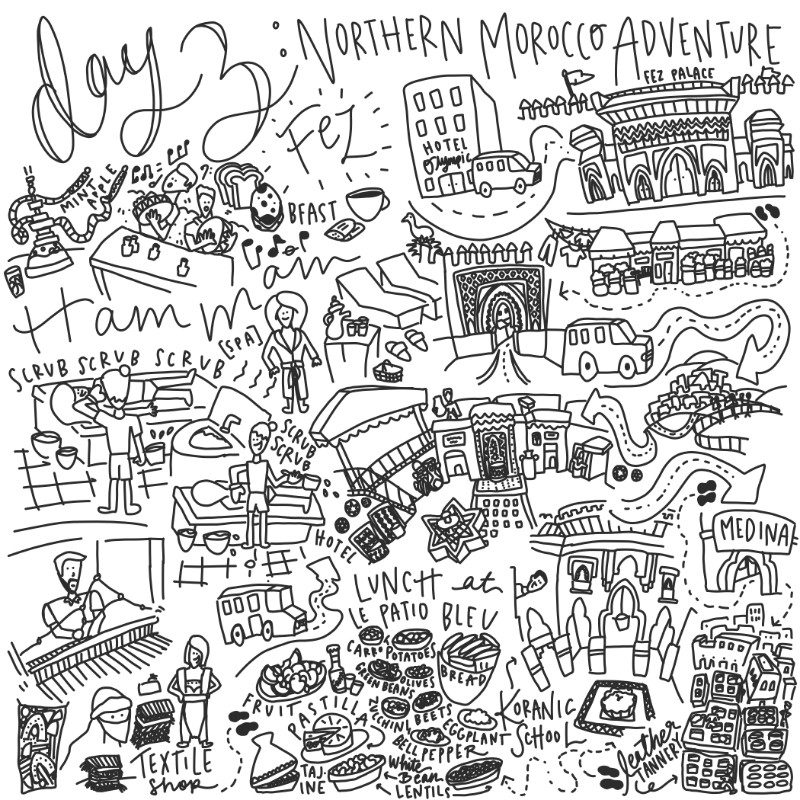 day 3: NORTHERN MOROCCO ADVENTURE
FEZ
FEZ PALACE
HOTEL
Olympic
MINT APPLE
BEAST
Hammam
[SPA]
SCRUB SCRUB SCRUB
SCRUB
SCRUB
HOTEL
MEDINA
LUNCH at
LE PATIO BLEU
CARROT
POTATOES
GREEN BEANS
OLIVES
BREAD
ZUCCHINI
BEETS
EGGPLANT
BELL PEPPER
FRUIT
PASTILLA
TAJINE
White Bean
LENTILS
KORANIC
SCHOOL
leather
TANNERY
TEXTILE
shop